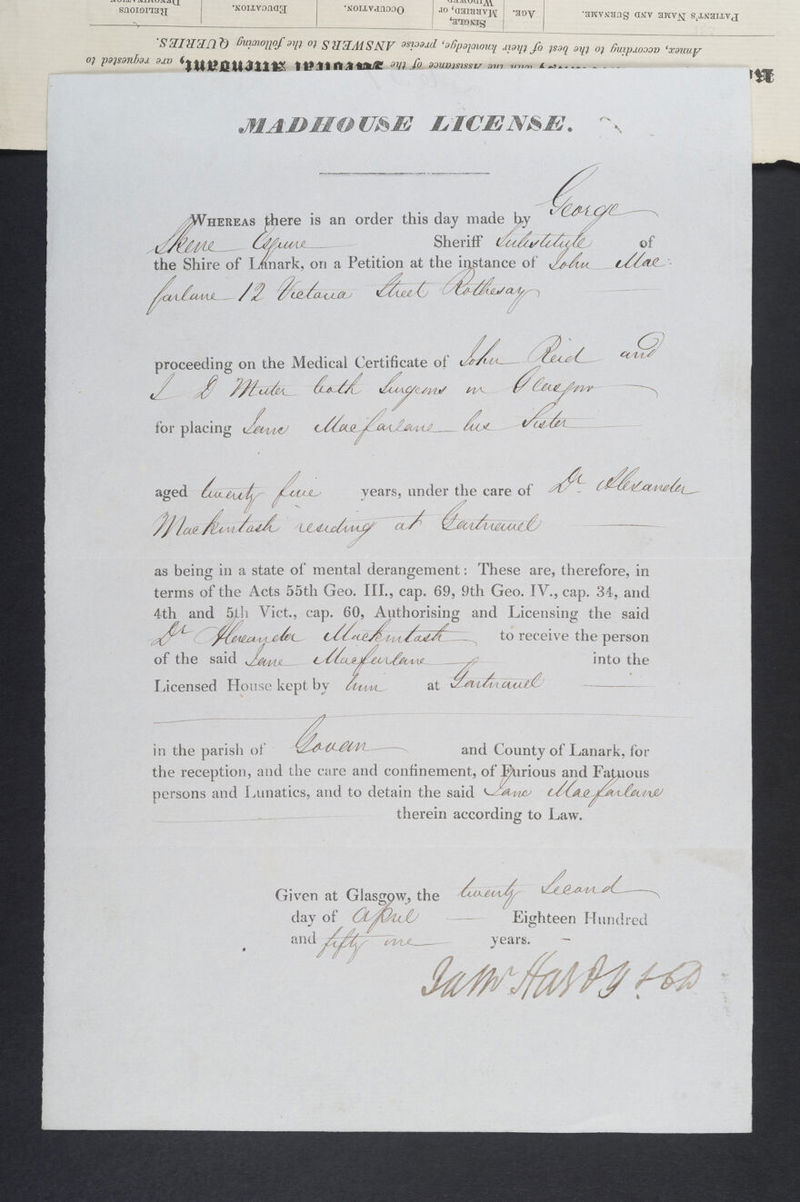 RELIGIOUS
EDUCATION.
OCCUPATION.
SINGLE,
MARRIED, or
AGE.
PATIENT'S NAME AND SURNAME.
annex, according to the best of their knowledge, precise ANSWERS to the following QUERIES.
are requested to
MADHOUSE LICENSE.
WHEREAS there is an order this day made by George
Skene Esquire Sheriff Substitute of
the Shire of Lanark, on a Petition at the instance of John Mac
farlane 12 Victoria Street Rothesay
proceeding on the Medical Certificate of John Reid and
J D Muter both Surgeons in Glasgow
for placing Jane Macfarlane his Sister
aged twenty five years, under the care of Dr. Alexander
Mackintosh residing at Gartnavel
as being in a state of mental derangement: These are, therefore, in
terms of the Acts 55th Geo. III., cap. 69, 9th Geo. IV., cap. 34, and
4th and 5th Vict., cap. 60, Authorising and Licensing the said
Dr Alexander Mackintosh to receive the person
of the said Jane Macfarlane into the
Licensed House kept by him at Gartnavel
in the parish of Govan and County of Lanark, for
the reception, and the care and confinement, of Furious and Fatuous
persons and Lunatics, and to detain the said Jane Macfarlane
therein according to Law.
Given at Glasgow, the twenty Second
day of April Eighteen Hundred
and fifty one years.